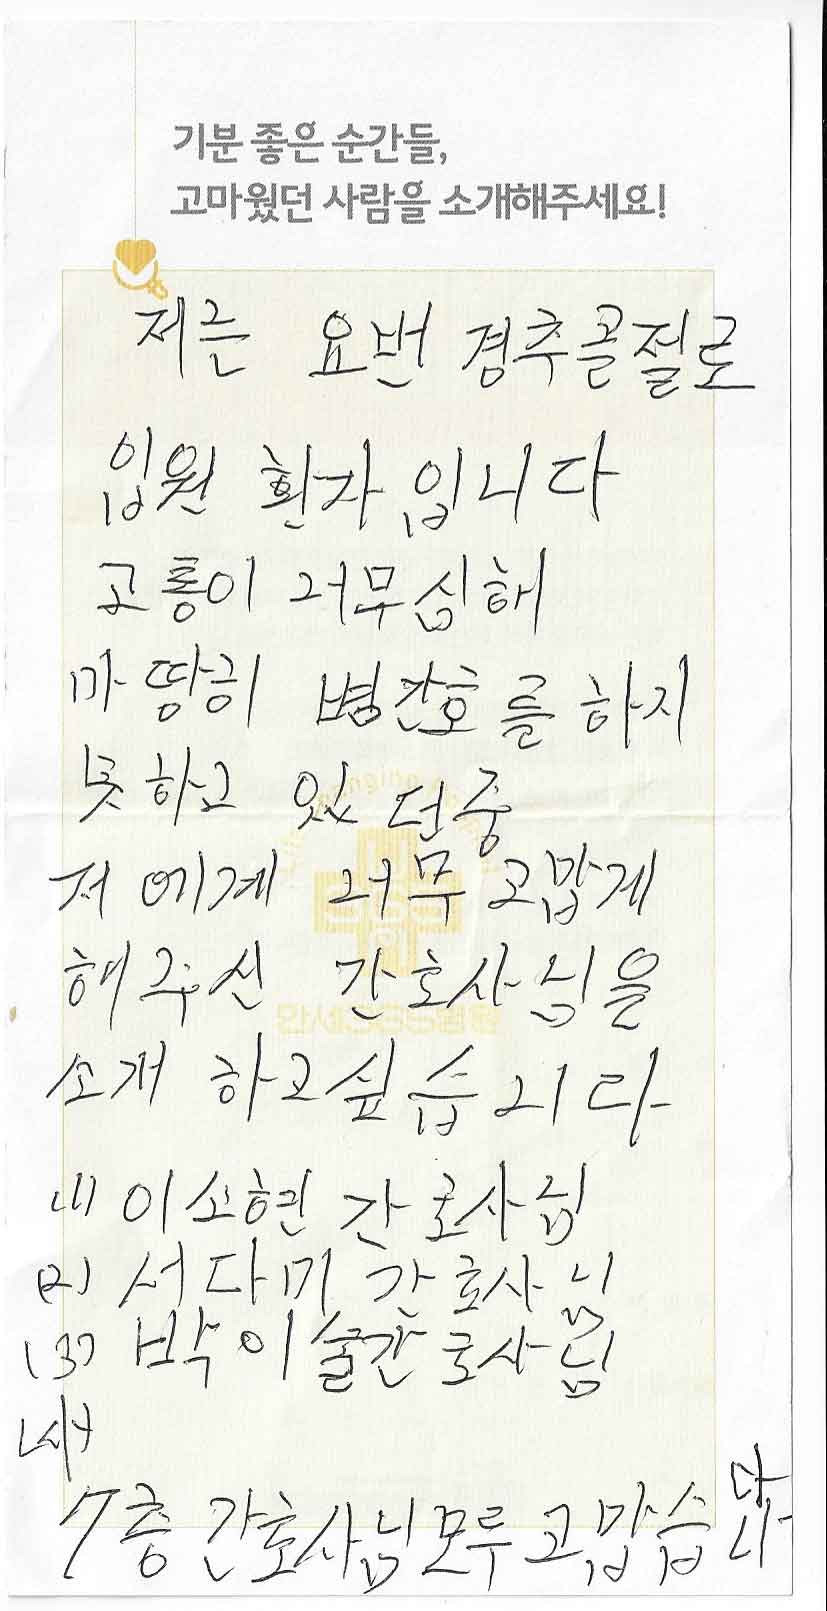 기분 좋은 순간들,
고마웠던 사람을 소개해주세요!
저는 요번 경추골절로
입원 환자입니다
고통이 너무심해
마땅히 병간호를 하지
못하고 있던중
저에게 너무 고맙게
해주신 간호사님을
소개 하고싶습니다
(1) 이소현 간호사님
(2) 서다미 간호사님
(3) 박이슬간호사님
7층 간호사님모두 고맙습니다